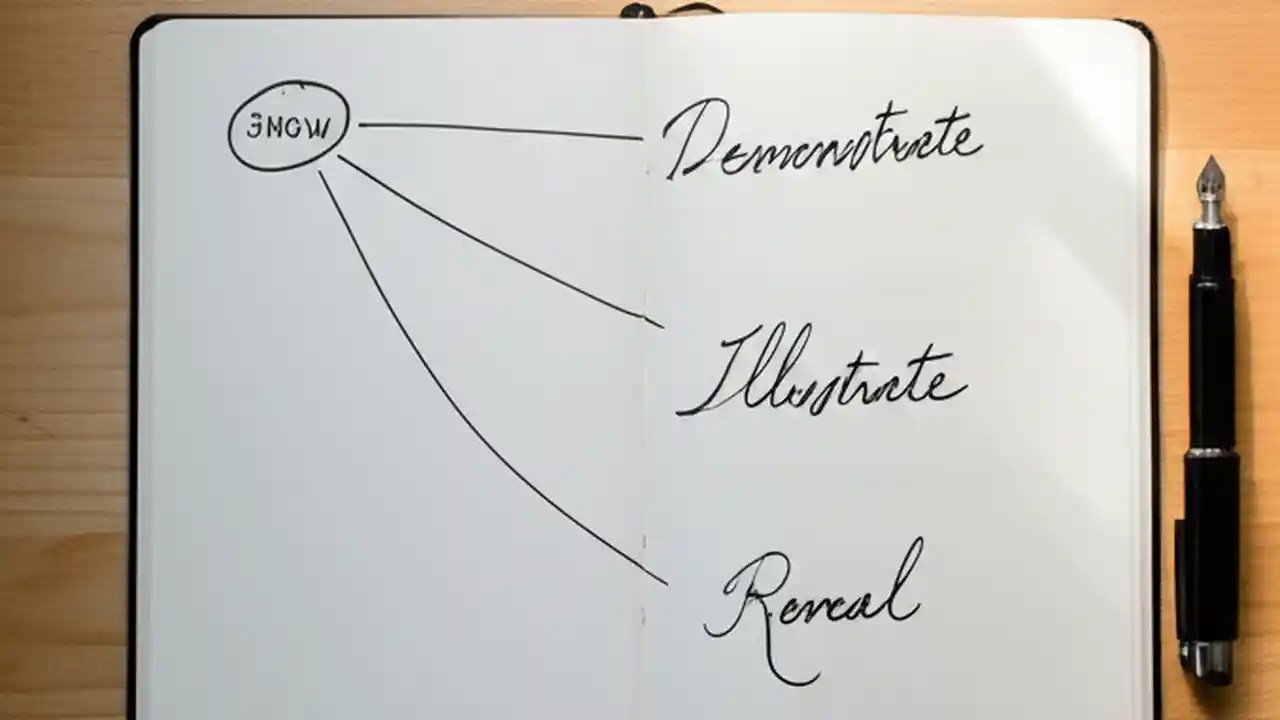 SHOW
Demonstrate
Illustrate
Reveal